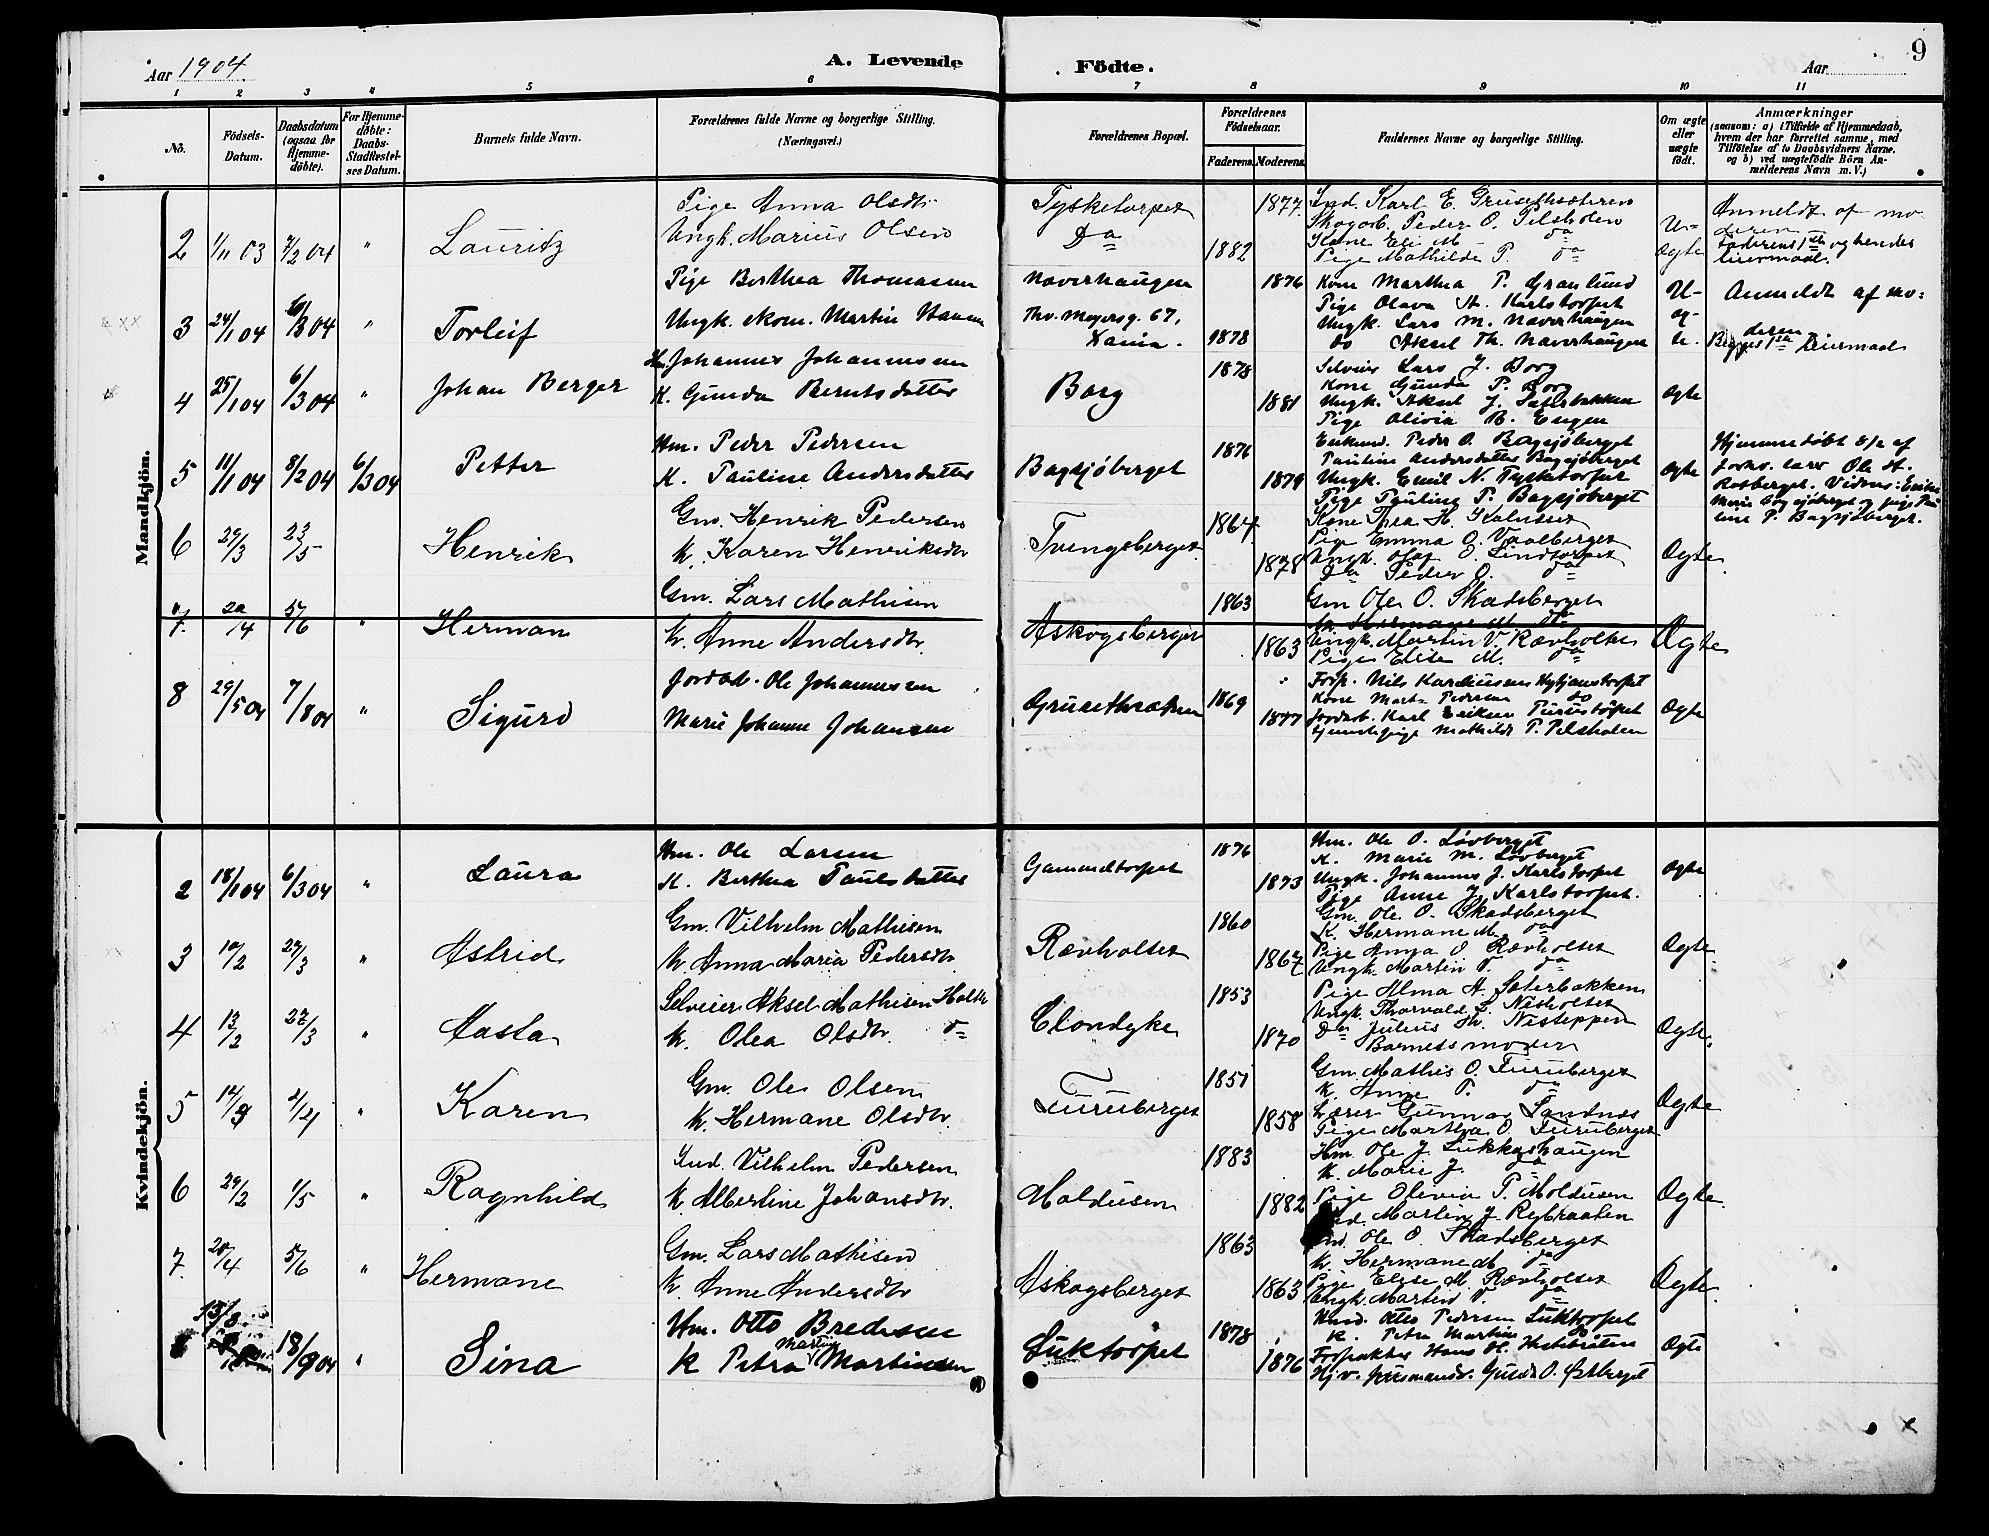 9
Aar 1904.
A. Levende Födte.
Aar
1 2 3 4 5 6 7 8 9 10 11
No.
Födsels-Datum.
Daabsdatum (ogsaa for Hjemme-döbte).
For Hjemme-döbte: Daabs-Stadfæstel-ses Datum.
Barnets fulde Navn.
Forældrenes fulde Navne og borgerlige Stilling. (Næringsvei.)
Forældrenes Bopæl.
Forældrenes Födselsaar.
Faderens. Moderens.
Faddernes Navne og borgerlige Stilling.
Om ægte eller uægte födt.
Anmærkninger
(saasom: a) i Tilfælde af Hjemmedaab, hvem der har forrettet samme, med Tilföielse af to Daabsvidners Navne. og b) ved uægtefödte Börn An-melderens Navn m. V.)
Mandkjön.
2 1/11 03 7/2 04 " Lauritz
Pige Anna Olsdtr
Ungk. Marius Olsen
Tysketorpet
Do
1877
1882
Ind. Karl E. Grusethsæteren
Skogarb. Peder O. Pelsholen
Kone Eli M do
Pige Mathilde P. do
U-
Ægte
Anmeldt af mo
deren
Faderens 1ste og hendes
leiermaal.
3 24/1 04 6/3 04 " Torleif
Pige Berthea Thomassen
Ungk. skom. Martin Hansen
Naverhaugen
Thv. Meyersg. 67,
Xania.
1876
1878
Kone Marthea P. Granlund
Pige Olava A. Karlstorpet
Ungk. Lars M. Naverhaugen
do Aksel Th. Naverhaugen
U-
æg-
te.
Anmeldt af mo-
deren
Begges 1ste Leiermaal
4 25/1 04 6/3 04 " Johan Berger
Hm. Johannes Johannessen
K. Gunda Berntsdatter
Borg
1878
1881
Selveier Lars J. Borg
Kone Gunda P. Borg
Ungk. Aksel J. Sæterbakken
Pige Olivia B. Engen
ægte
5 11/1 04 8/2 04 6/3 04 Petter
Hm. Peder Pedersen
K. Pauline Andersdatter
Bagsjøberget
1876
1879
Enkem. Peder O. Bagsjøberget
Pauline Andersdatter Bagsjøberget
Ungk. Emil N. Tysketorpet
Pige Pauline P. Bagsjøberget
ægte
Hjemmedøbt 8/2 af
forhv. lærer Ole
Rotberget. Vidner: Enke
Marie Bagsjøberget og pige Pau
line P. Bagsjøberget.
6 29/3 23/5 Henrik
Gm. Henrik Pedersen
K. Karen Henriksdtr
Tvengsberget
1864
1878
Kone Thea H. Kalnæset
Pige Emma O. Vaalberget
Ungk. Olaf O. Lindtorpet
Do Peder O. do
Ægte
7. 20/4 5/6 " Herman
Gm. Lars Mathisen
K. Anne Andersdtr.
Askogsberget
1863
1863
Gm Ole O. Skadsberget
K. Hermane M. do
Ungk. Martin V. Rævholtet
Pige Elise M. do
Ægte
8 29/5 04 7/8 04 " Sigurd
Jordad. Ole Johannessen
Marie Johanne Johansen
Grusethsæteren
1869
1877
Forp. Nils Kardiussen Nytjanstorpet
Kone Marte Pedersen do
Jordarb. Karl Eriksen Purustorpet
tjenestepige Mathilde P. Pelsholen
ægte
Kvindekjön.
2 18/1 04 6/3 04 " Laura
Hm. Ole Larsen
K. Berthea Paulsdatter
Gamundtorpet
1876
1873
Hm. Ole O. Løvberget
K. Marie M. Løvberget
Ungk. Johannes J. Karlstorpet
Pige Anne J. Karlstorpet.
ægte
3 10/2 27/3 " Astrid
Gm. Vilhelm Mathisen
K. Anna Maria Pedersdtr.
Rævholtet
1860
1867
Gm. Ole O. Skadsberget
K. Hermane M. do
Pige Anna O. Rævholtet
Ungk. Martin V. do
Ægte.
4 13/2 27/3 " Aasta
Selveier Aksel Mathisen Holth
K. Olea Olsdtr. do
Clondyke
1853
1870
Pige Alma A. Sæterbakken
Ungk. Thorvald L. Nisholtet
Do Julius Th. Nisteppen
Barnets moder
Ægte.
5 14/3 4/4 " Karen
Gm. Ole Olsen
K. Hermane Olsdtr.
Furuberget
1851
1858
Gm. Mathis O. Furuberget
K. Anne P. do
Lærer Gunnar Sandnæs
Pige Marthea O. Furuberget
Ægte
6 29/2 1/5 " Ragnhild
Ind. Vilhelm Pedersen
K. Albertine Johansdtr.
Moldusen
1883
1882
Hm. Ole J. Lukkashaugen
K. Marie J. do
Pige Olivia P. Moldusen
Ind. Martin J. Rybraaten
Ægte.
7. 20/4 5/6 " Hermane
Gm. Lars Mathisen
K. Anne Andersdtr
Askogsberget
1863
1863
Gm. Ole O. Skadsberget
K. Hermane M do
Pige Elise M. Rævholtet
Ungk. Martin V. do
Ægte.
13/8 18/9 04 " Sina
Hm. Otto Bredesen
K Petra Martine Martinsen
Luktorpet
1878
1876
Husd. Otto Pedersen Luktorpet
K. Petra Martine do
Forpakter Hans H. Hestbraaten
Hjv. husmandsd. Gulda O. Østberget
Ægte
x